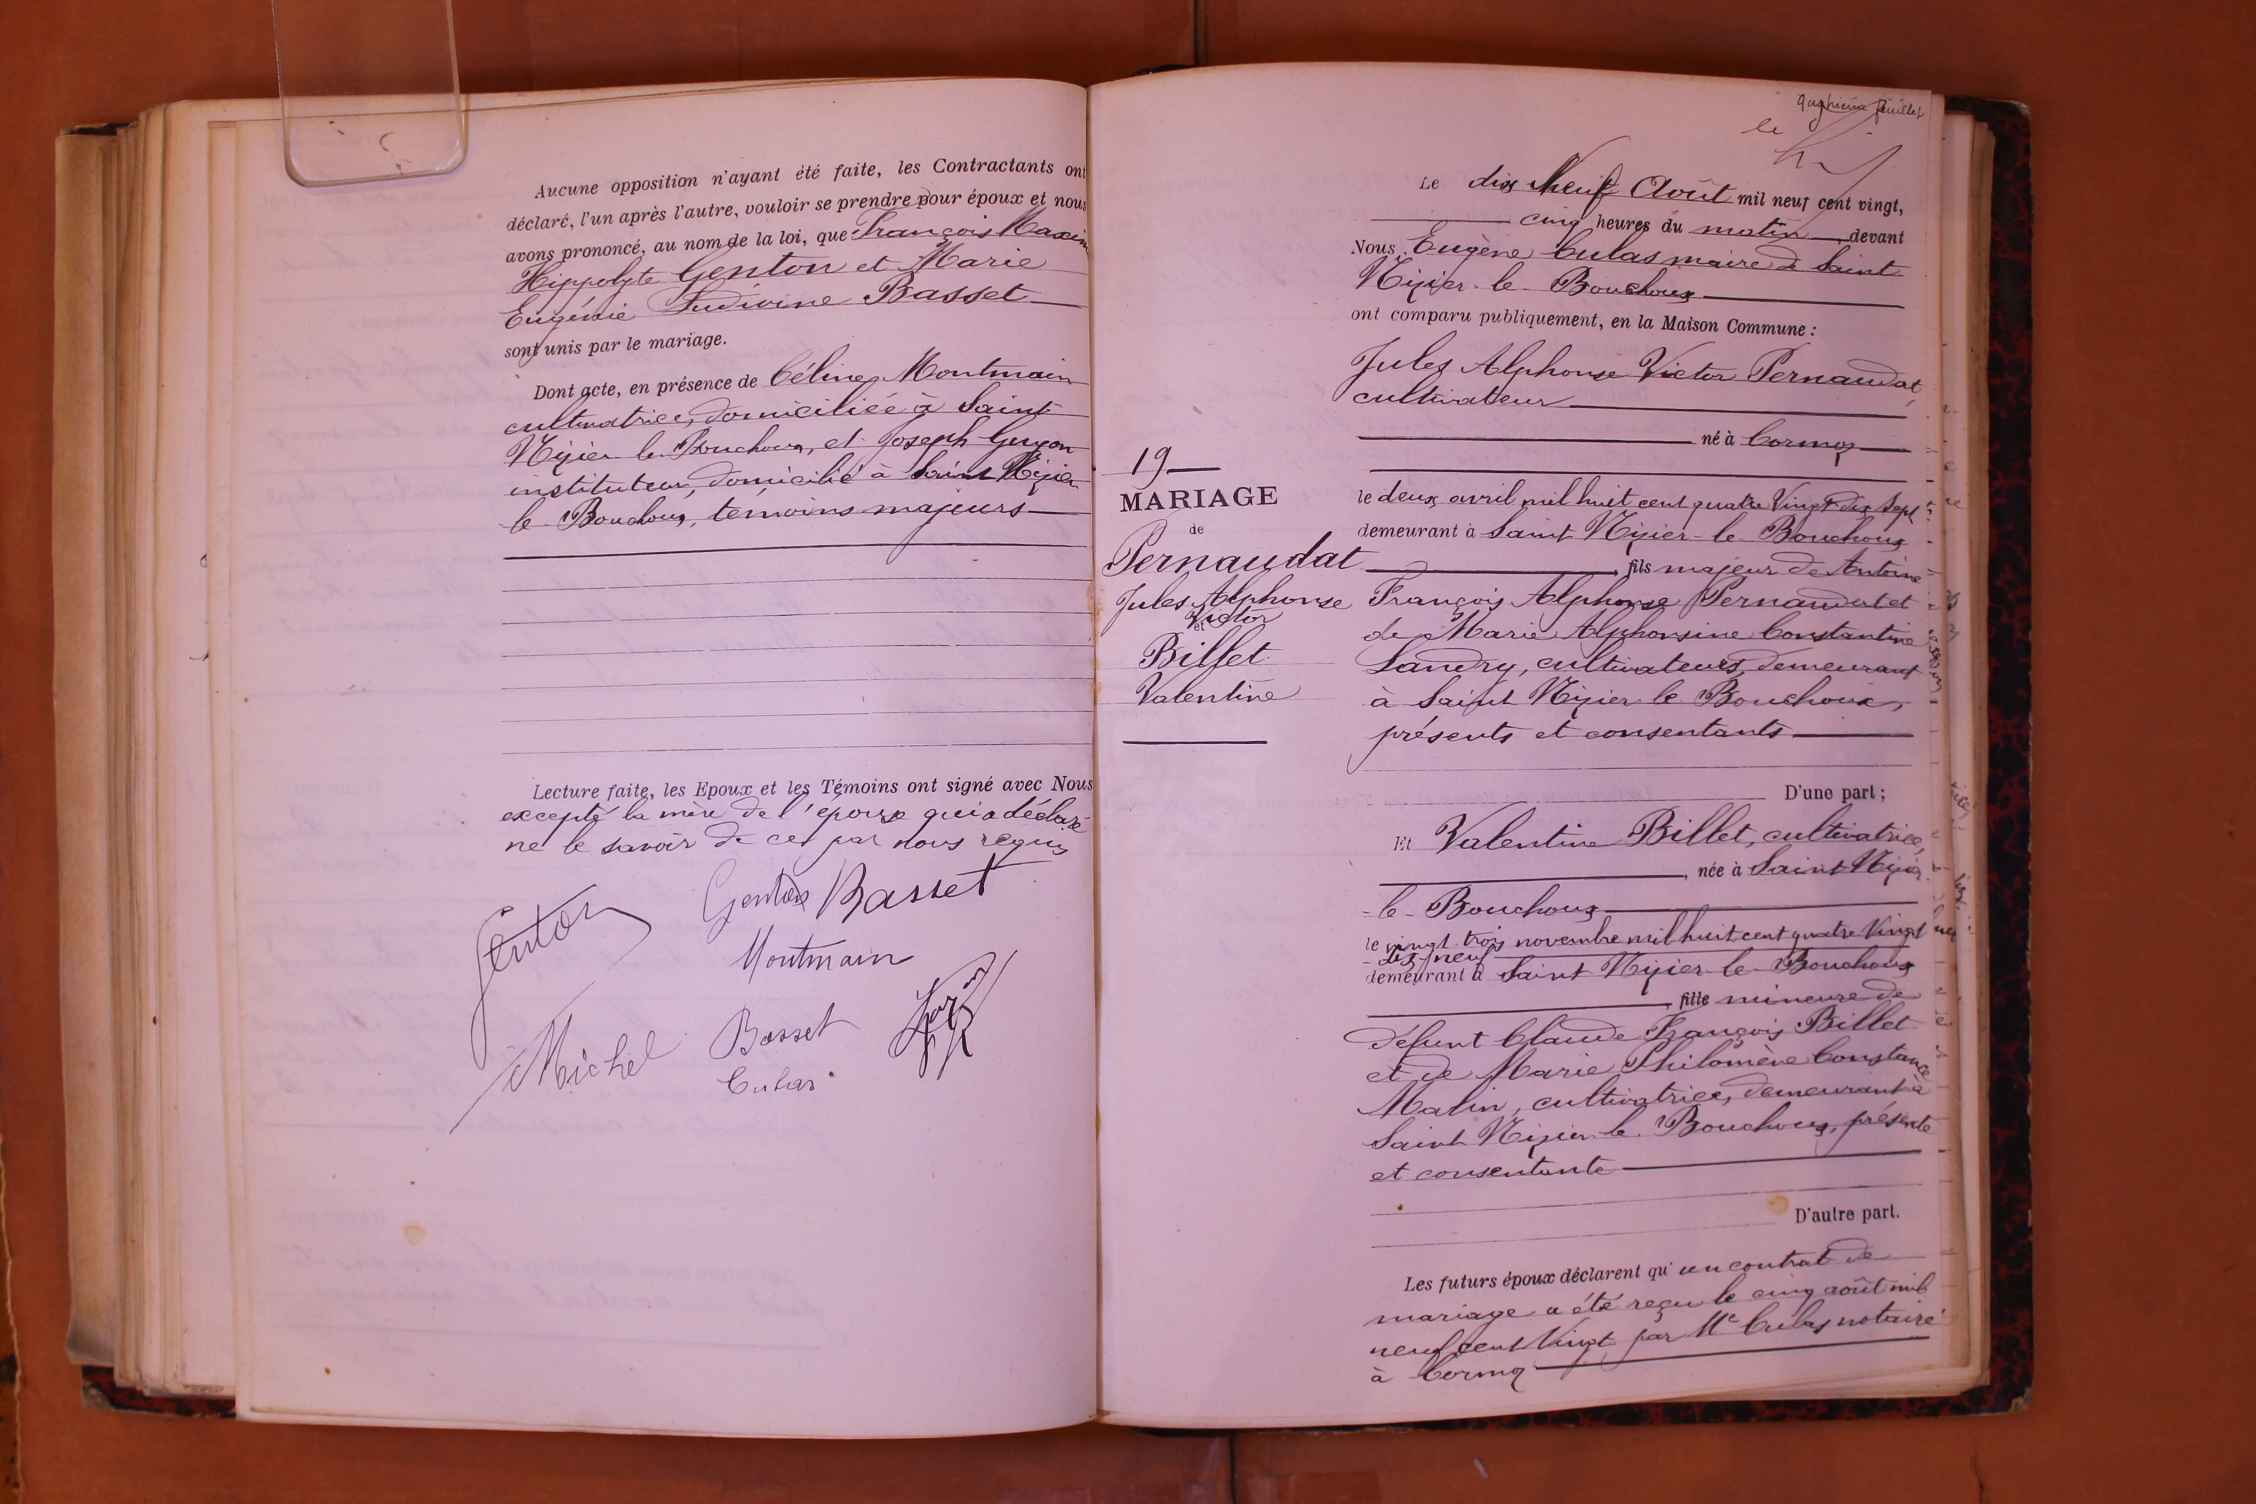 Aucune opposition n'ayant été faite, les Contractants ont
déclaré, l'un après l'autre, vouloir se prendre pour époux et nous
avons prononcé, au nom de la loi, que François Maxim
Hippolyte Genton et Marie
Eugénie Ludivine Basset
sont unis par le mariage.
Dont acte, en présence de Céline Montmain
cultivatrice, domiciliée à Saint
Nizier le Bouchoux, et Joseph Guyon
instituteur, domicilié à Saint Nizier
le Bouchoux, témoins majeurs
Lecture faite, les Epoux et les Témoins ont signé avec Nous
excepté la mère de l'épouse qui a déclaré
ne le savoir de ce par nous requis
Genton
Genton Basset
Montmain
Michel
Basset
Culas
quatrième feuillet
le
Le dix Neuf Août mil neuf cent vingt,
cinq heures du matin, devant
Nous, Eugène Culas maire de Saint
Nizier-le-Bouchoux
ont comparu publiquement, en la Maison Commune :
Jules Alphonse Victor Pernaudat,
cultivateur
né à Cormoz
le deux avril mil huit cent quatre Vingt dix Sept
demeurant à Saint Nizier-le-Bouchoux
, fils majeur de Antoine
François Alphonse Pernaudat et
de Marie Alphonsine Constantine
Landry, cultivateurs, demeurant
à Saint Nizier le Bouchoux,
présents et consentants
D'une part ;
19
MARIAGE
de
Pernaudat
Jules Alphonse
Victor
et
Billet
Valentine
Et Valentine Billet, cultivatrice,
, née à Saint Nizier
-le-Bouchoux
le vingt-trois novembre mil huit cent quatre Vingt
-dix-neuf
demeurant à Saint Nizier-le-Bouchoux
, fille mineure de
défunt Claude François Billet
et de Marie Philomène Constance
Malin, cultivatrice, demeurant à
Saint Nizier le Bouchoux, présente
et consentante
D'autre part.
Les futurs époux déclarent qu'un contrat de
mariage a été reçu le cinq août mil
neuf cent Vingt par Me Culas notaire
à Cormoz